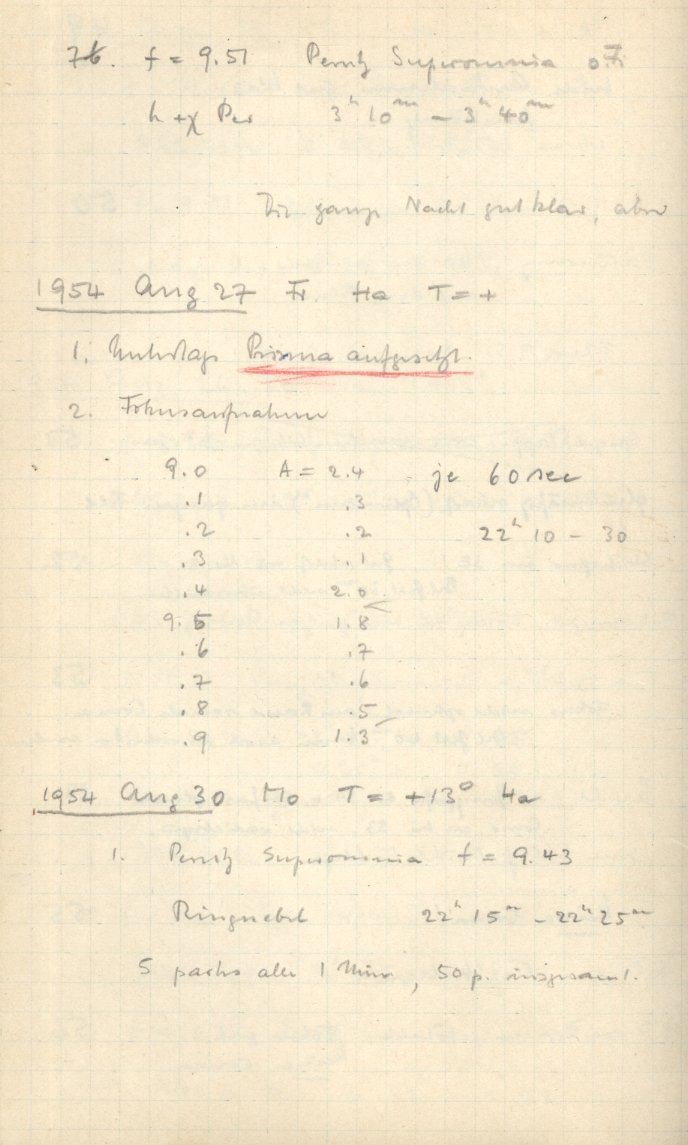 76. f = 9.51 Perutz Superomnia o.F.
h + χ Per 3h 10m – 3h 40m
Die ganze Nacht gut klar, aber
1954 Aug 27 Fr Ha T = +
1. Prisma aufgesetzt.
2. Fokusaufnahmen
9.0 A = 2.4 je 60 sec
.1 .3
.2 .2 22h 10 – 30
.3 .1
.4 2.0
9.5 1.8
.6 .7
.7 .6
.8 .5
.9 1.3
1954 Aug 30 Mo T = +13° Ha
1. Perutz Superomnia f = 9.43
Ringnebel 22h 15m – 22h 25m
5 parts alle 1 Min, 50 p. insgesamt.